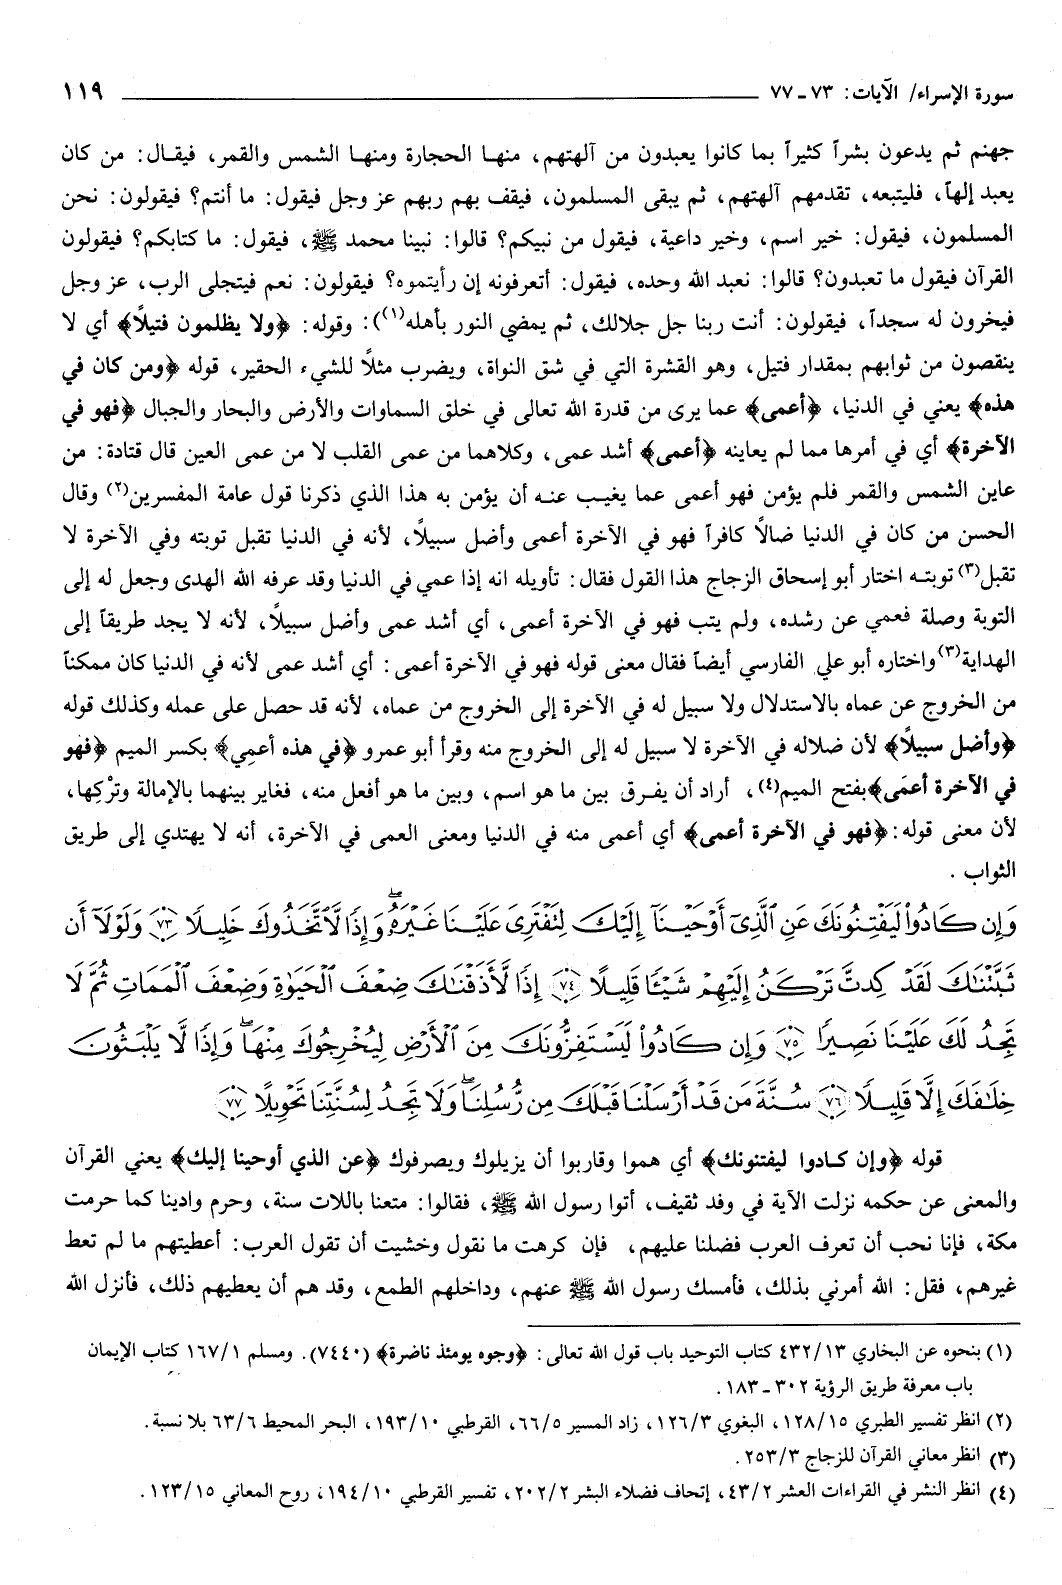 سورة الإسراء/ الآيات: ٧٣ - ٧٧ ١١٩
جهنم ثم يدعون بشراً كثيراً بما كانوا يعبدون من آلهتهم، منهـا الحجارة ومنهـا الشمس والقمر، فيقـال: من كان
يعبد إلهاً، فليتبعه، تقدمهم آلهتهم، ثم يبقى المسلمون، فيقف بهم ربهم عز وجل فيقول: ما أنتم؟ فيقولون: نحن
المسلمون، فيقول: خير اسم، وخير داعية، فيقول من نبيكم؟ قالوا: نبينا محمد ﷺ، فيقول: ما كتابكم؟ فيقولون
القرآن فيقول ما تعبدون؟ قالوا: نعبد الله وحده، فيقول: أتعرفونه إن رأيتموه؟ فيقولون: نعم فيتجلى الرب، عز وجل
فيخرون له سجداً، فيقولون: أنت ربنا جل جلالك، ثم يمضي النور بأهله(١)): وقوله: ﴿ولا يظلمون فتيلاً﴾ أي لا
ينقصون من ثوابهم بمقدار فتيل، وهو القشرة التي في شق النواة، ويضرب مثلاً للشيء الحقير، قوله ﴿ومن كان في
هذه﴾ يعني في الدنيا، ﴿أعمى﴾ عما يرى من قدرة الله تعالى في خلق السماوات والأرض والبحار والجبال ﴿فهو في
الآخرة﴾ أي في أمرها مما لم يعاينه ﴿أعمى﴾ أشد عمى، وكلاهما من عمى القلب لا من عمى العين قال قتادة: من
عاين الشمس والقمر فلم يؤمن فهو أعمى عما يغيب عنـه أن يؤمن به هذا الذي ذكرنا قول عامة المفسرين(٢) وقال
الحسن من كان في الدنيا ضالاً كافراً فهو في الآخرة أعمى وأضل سبيلاً، لأنه في الدنيا تقبل توبته وفي الآخرة لا
تقبل(٣) توبتـه اختار أبو إسحاق الزجاج هذا القول فقال: تأويله انه إذا عمي في الدنيا وقد عرفه الله الهدى وجعل له إلى
التوبة وصلة فعمي عن رشده، ولم يتب فهو في الآخرة أعمى، أي أشد عمى وأضل سبيلاً، لأنه لا يجد طريقاً إلى
الهداية(٣) واختاره أبو علي الفارسي أيضاً فقال معنى قوله فهو في الآخرة أعمى: أي أشد عمى لأنه في الدنيا كان ممكناً
من الخروج عن عماه بالاستدلال ولا سبيل له في الآخرة إلى الخروج من عماه، لأنه قد حصل على عمله وكذلك قوله
﴿وأضل سبيلاً﴾ لأن ضلاله في الآخرة لا سبيل له إلى الخروج منه وقرأ أبو عمرو ﴿في هذه أعمِي﴾ بكسر الميم ﴿فهو
في الآخرة أعمَى﴾ بفتح الميم(٤)، أراد أن يفـرق بين ما هو اسم، وبين ما هو أفعل منه، فغاير بينهما بالإمالة وترْكِها،
لأن معنى قوله: ﴿فهو في الآخرة أعمى﴾ أي أعمى منه في الدنيا ومعنى العمى في الآخرة، أنه لا يهتدي إلى طريق
الثواب.
وَإِن كَادُوا۟ لَيَفْتِنُونَكَ عَنِ ٱلَّذِىٓ أَوْحَيْنَآ إِلَيْكَ لِتَفْتَرِىَ عَلَيْنَا غَيْرَهُۥ ۖ وَإِذًا لَّٱتَّخَذُوكَ خَلِيلًا ﴿٧٣﴾ وَلَوْلَآ أَن
ثَبَّتْنَٰكَ لَقَدْ كِدتَّ تَرْكَنُ إِلَيْهِمْ شَيْـًٔا قَلِيلًا ﴿٧٤﴾ إِذًا لَّأَذَقْنَٰكَ ضِعْفَ ٱلْحَيَوٰةِ وَضِعْفَ ٱلْمَمَاتِ ثُمَّ لَا
تَجِدُ لَكَ عَلَيْنَا نَصِيرًا ﴿٧٥﴾ وَإِن كَادُوا۟ لَيَسْتَفِزُّونَكَ مِنَ ٱلْأَرْضِ لِيُخْرِجُوكَ مِنْهَا ۖ وَإِذًا لَّا يَلْبَثُونَ
خِلَٰفَكَ إِلَّا قَلِيلًا ﴿٧٦﴾ سُنَّةَ مَن قَدْ أَرْسَلْنَا قَبْلَكَ مِن رُّسُلِنَا ۖ وَلَا تَجِدُ لِسُنَّتِنَا تَحْوِيلًا ﴿٧٧﴾
قوله ﴿وإن كـادوا ليفتنونك﴾ أي هموا وقاربوا أن يزيلوك ويصرفوك ﴿عن الذي أوحينا إليك﴾ يعني القرآن
والمعنى عن حكمه نزلت الآية في وفد ثقيف، أتوا رسول الله ﷺ، فقالوا: متعنا باللات سنة، وحرم وادينا كما حرمت
مكة، فإنا نحب أن تعرف العرب فضلنا عليهم، فإن كرهت ما نقول وخشيت أن تقول العرب: أعطيتهم ما لم تعط
غيرهم، فقل: الله أمرني بذلك، فأمسك رسول الله ﷺ عنهم، وداخلهم الطمع، وقد هم أن يعطيهم ذلك، فأنزل الله
(١) بنحوه عن البخاري ٤٣٢/١٣ كتاب التوحيد باب قول الله تعالى: ﴿وجوه يومئذ ناضرة﴾ (٧٤٤٠). ومسلم ١٦٧/١ كتاب الإيمان
باب معرفة طريق الرؤية ٣٠٢ - ١٨٣.
(٢) انظر تفسير الطبري ١٢٨/١٥، البغوي ١٢٦/٣، زاد المسير ٦٦/٥، القرطبي ١٩٣/١٠، البحر المحيط ٦٣/٦ بلا نسبة.
(٣) انظر معاني القرآن للزجاج ٢٥٣/٣.
(٤) انظر النشر في القراءات العشر ٤٣/٢، إتحاف فضلاء البشر ٢٠٢/٢، تفسير القرطبي ١٩٤/١٠، روح المعاني ١٢٣/١٥.